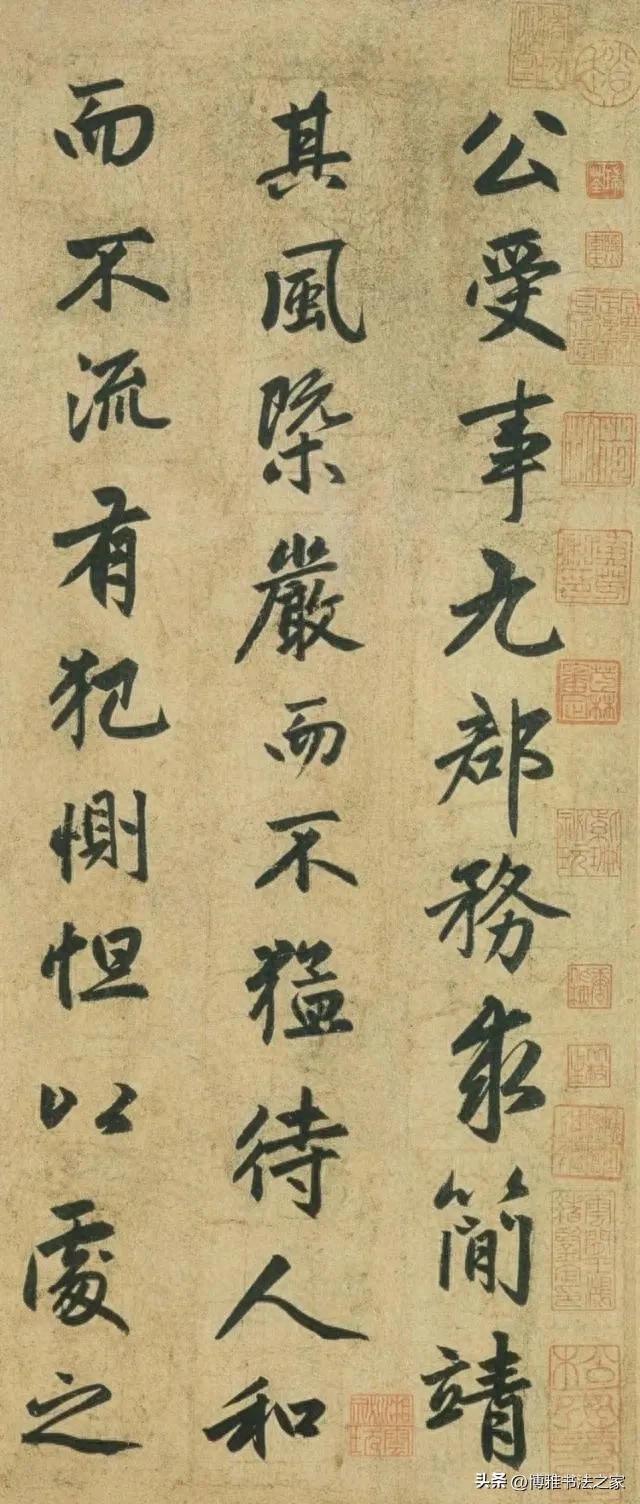 公受事九郡務求簡靖
其風槩嚴而不猛待人和
而不流有犯惻怛以處之
头条 @博雅书法之家